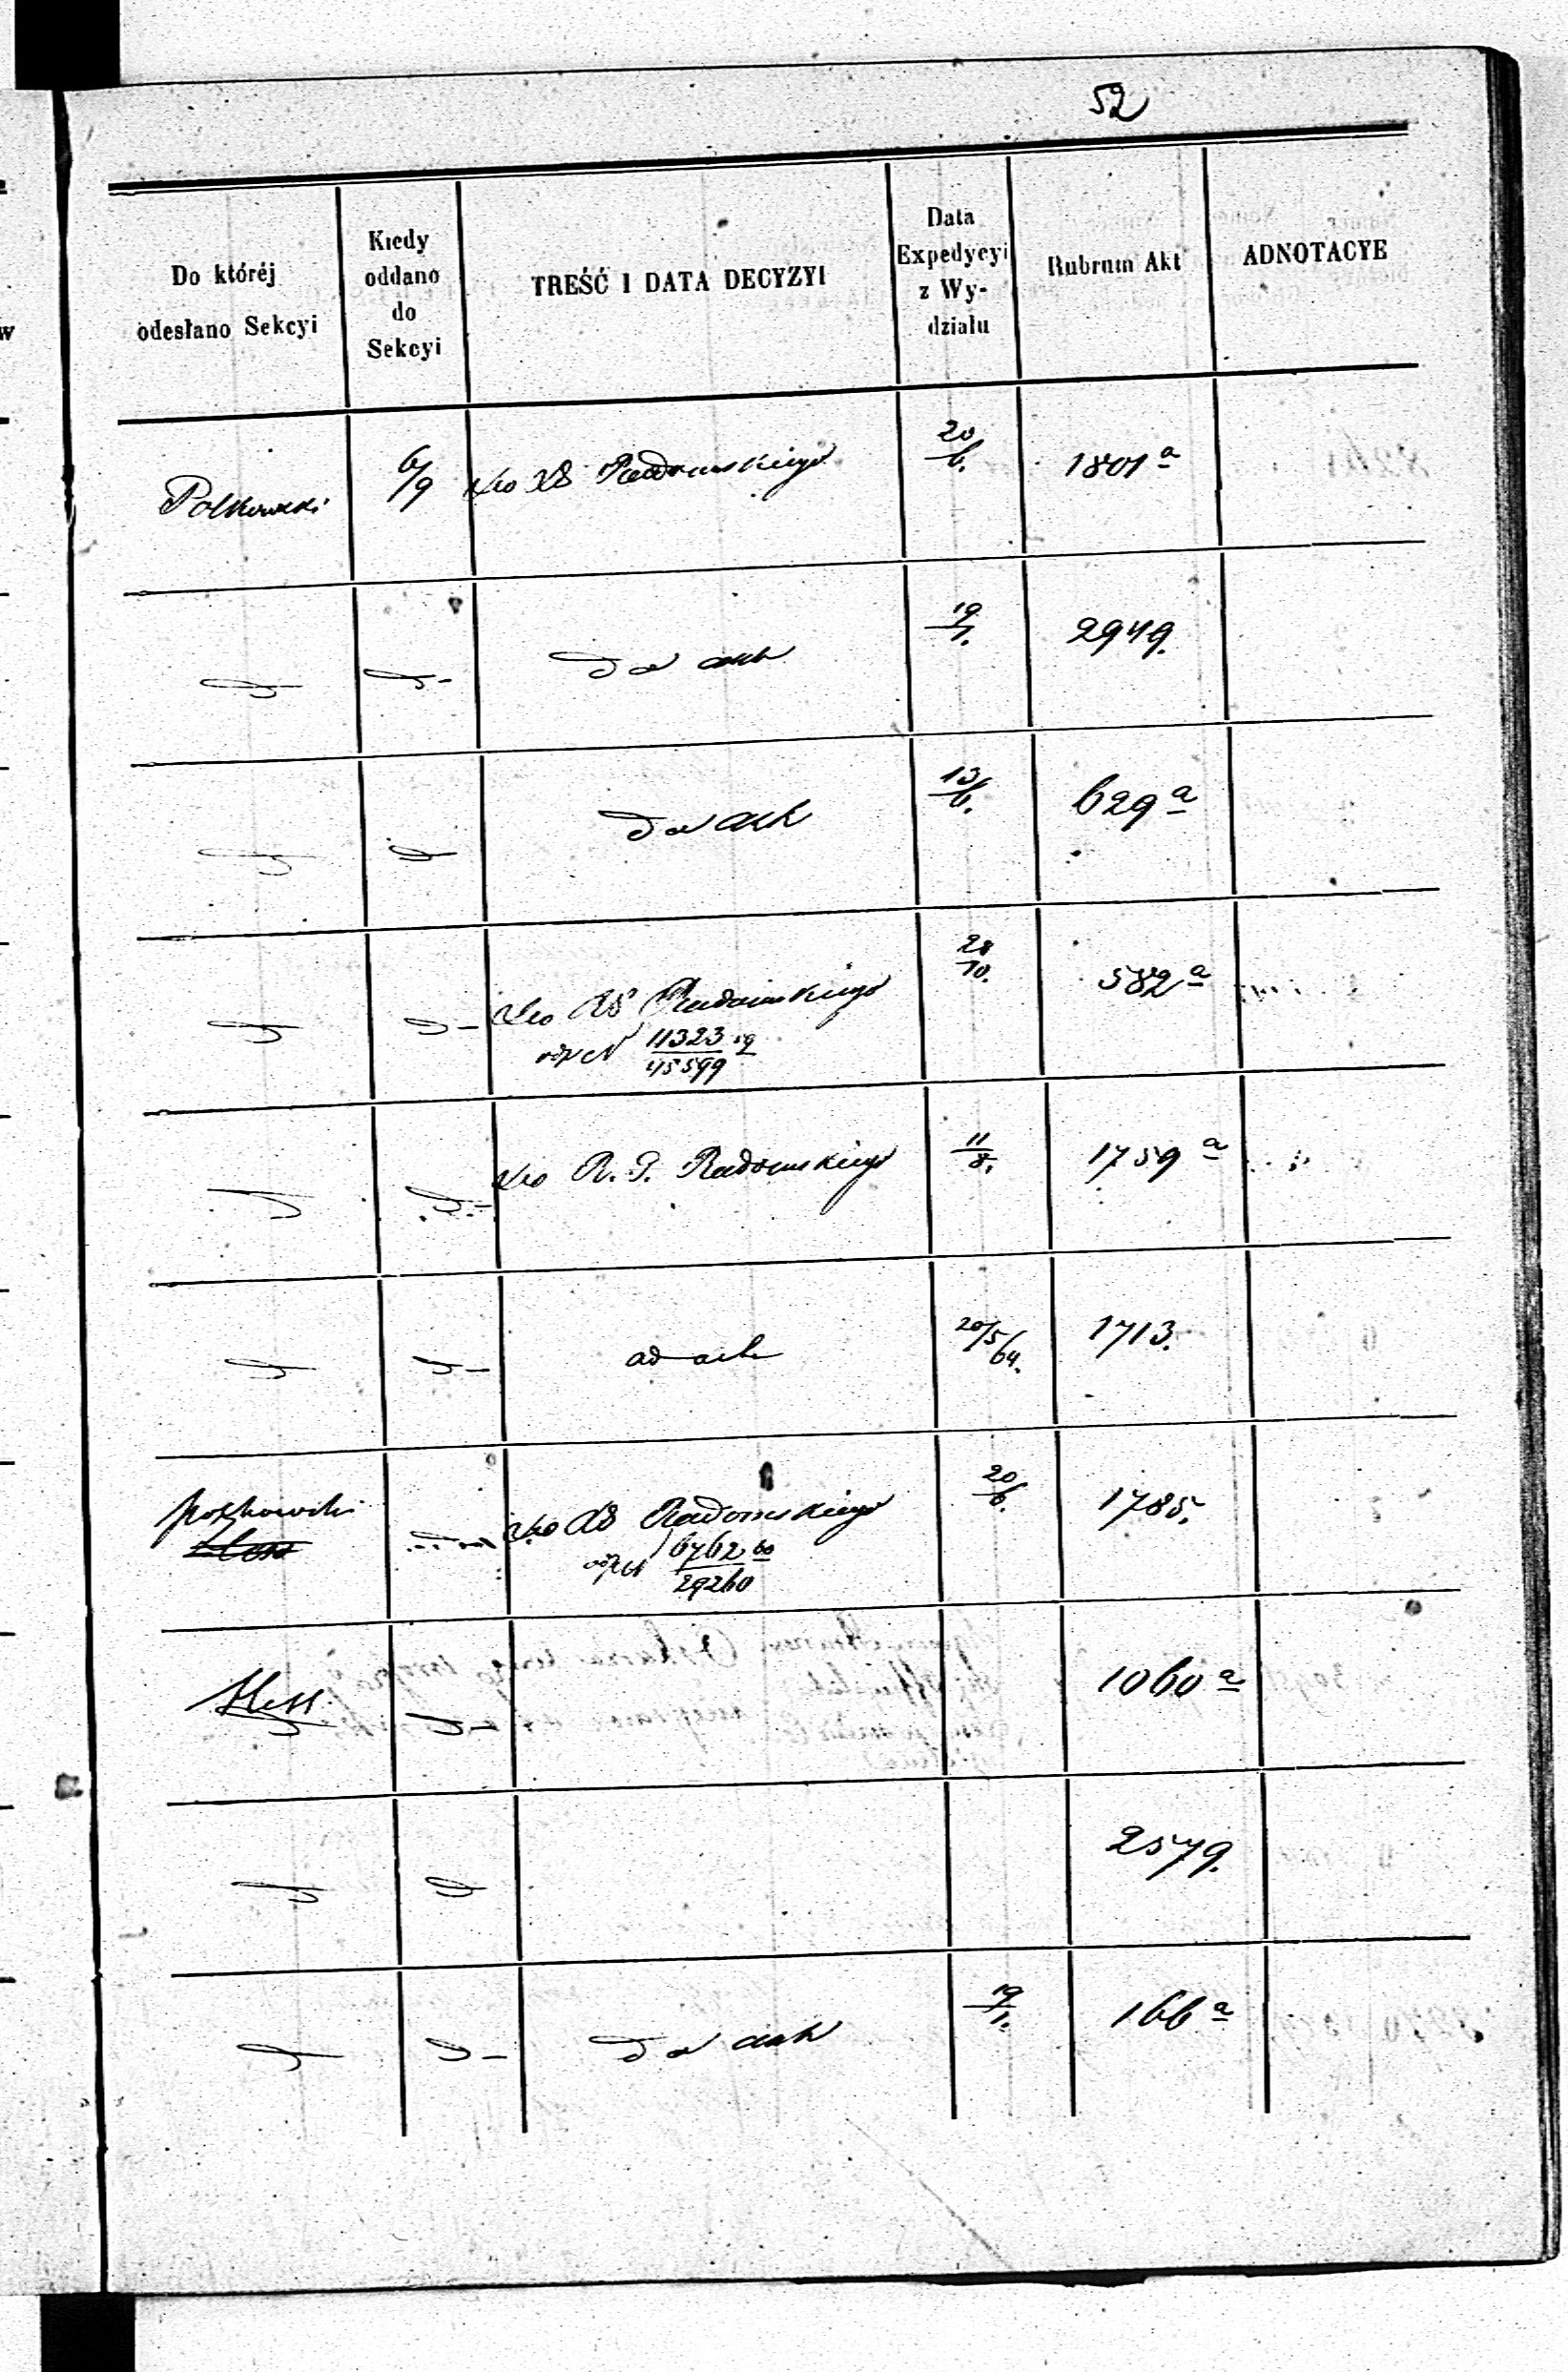 52
Do któréj
odesłano Sekcyi
Kiedy
oddano
do
Sekcyi
TREŚĆ I DATA DECYZYI
Data
Expedycyi
z Wy-
działu
Rubrum Akt
ADNOTACYE
Polkowski 6/9 Do RG Radomskiego 20/6. 1801 a
Do akt 19/1. 2949.
Do akt 13/6. 629 a
Do RG Radomskiego 28/10. 582 a
N 11323/45599
Do R. G. Radomskiego 11/8. 1759 a
ad acta 20/5/64. 1713.
Polkowski Do RG Radomskiego 20/6. 1785.
N 6762/29260
Hess 1060 a
2579.
Do akt 19/1. 166 a